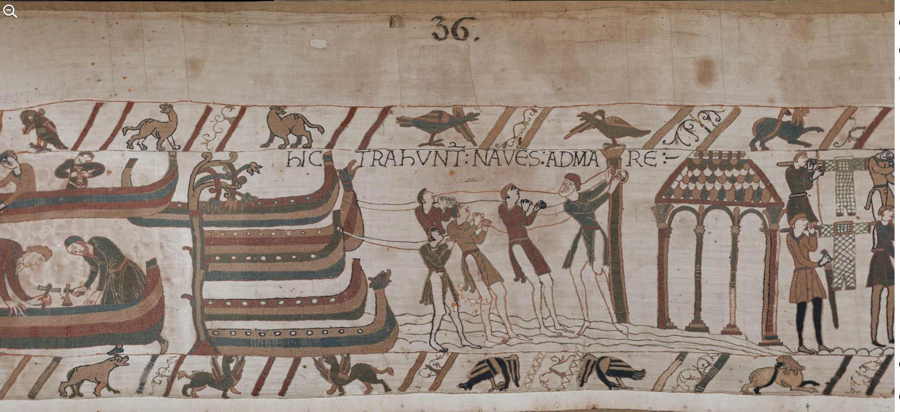 36.
hIC TRAhVNT: NAVES: ADMARE:-